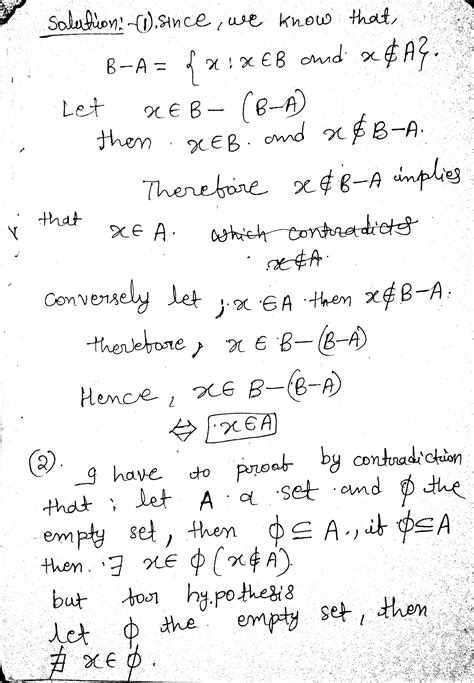 Solution:- (1). Since, we know that,
B-A = { x : x ∈ B and x ∉ A}.
Let x ∈ B - (B-A)
then x ∈ B. and x ∉ B-A.
Therefore x ∉ B-A implies
that x ∈ A. which contradicts
x ∉ A.
conversely let ; x ∈ A then x ∉ B-A.
therefore, x ∈ B-(B-A)
Hence, x ∈ B-(B-A)
⇔ x ∈ A
(2). I have to proof by contradiction
that ; let A a set and ϕ the
empty set, then ϕ ⊆ A., if ϕ ⊆ A
then. ∃ x ∈ ϕ (x ∉ A).
but for hypothesis
let ϕ the empty set, then
∄ x ∈ ϕ.